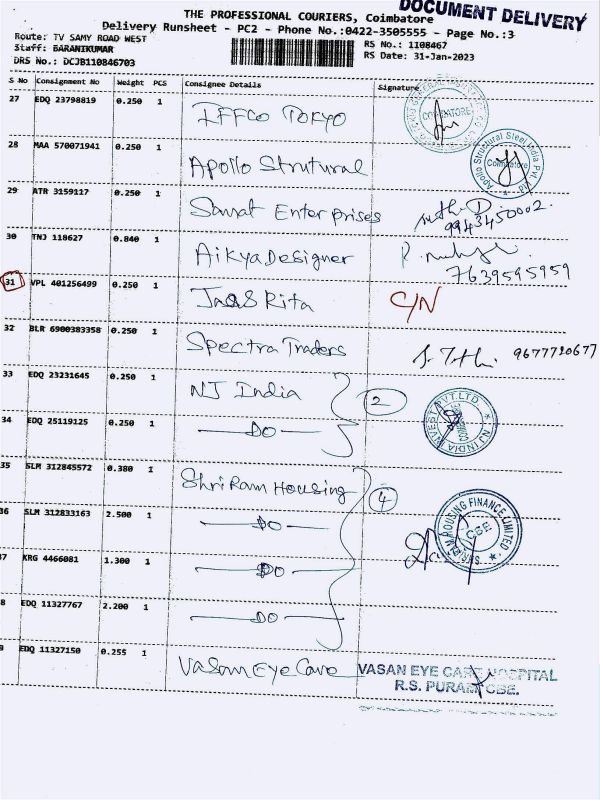 DOCUMENT DELIVERY
THE PROFESSIONAL COURIERS, Coimbatore
Delivery Runsheet - PC2 - Phone No.:0422-3505555 - Page No.:3
Route: TV SAMY ROAD WEST
RS No.: 1108467
Staff: BARANIKUMAR
RS Date: 31-Jan-2023
DRS No.: DCJB110846703
S No Consignment No Weight PCS Consignee Details Signature
27 EDQ 23798819 0.250 1 IFFCO TOKYO
COIMBATORE
28 MAA 570071941 0.250 1 Apollo Strutural
Apollo Structural Steel India Pvt. Ltd. Coimbatore
29 ATR 3159117 0.250 1 Samat Enterprises
9943450002
30 TNJ 118627 0.840 1 Aikya Designer
7639595959
31 VPL 401256499 0.250 1 JaasRita C/N
32 BLR 6900383358 0.250 1 Spectra Traders 9677720677
33 EDQ 23231645 0.250 1 NJ India 2
NJ INDIA INVEST PVT. LTD.
34 EDQ 25119125 0.250 1 —DO—
35 SLM 312845572 0.380 1 Shri Ram Housing 4
36 SLM 312833163 2.500 1 —DO—
SHRIRAM HOUSING FINANCE LIMITED CBE
7 KRG 4466081 1.300 1 —DO—
8 EDQ 11327767 2.200 1 —DO—
9 EDQ 11327150 0.255 1 Vasan Eye Care
VASAN EYE CARE HOSPITAL
R.S. PURAM, CBE.